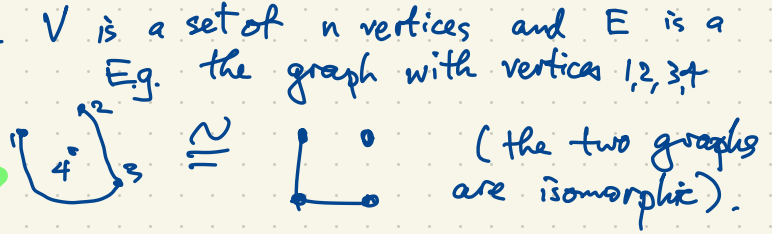 V is a set of n vertices and E is a
E.g. the graph with vertices 1,2,3,4
1 2 3 4 ≅ (the two graphs
are isomorphic).